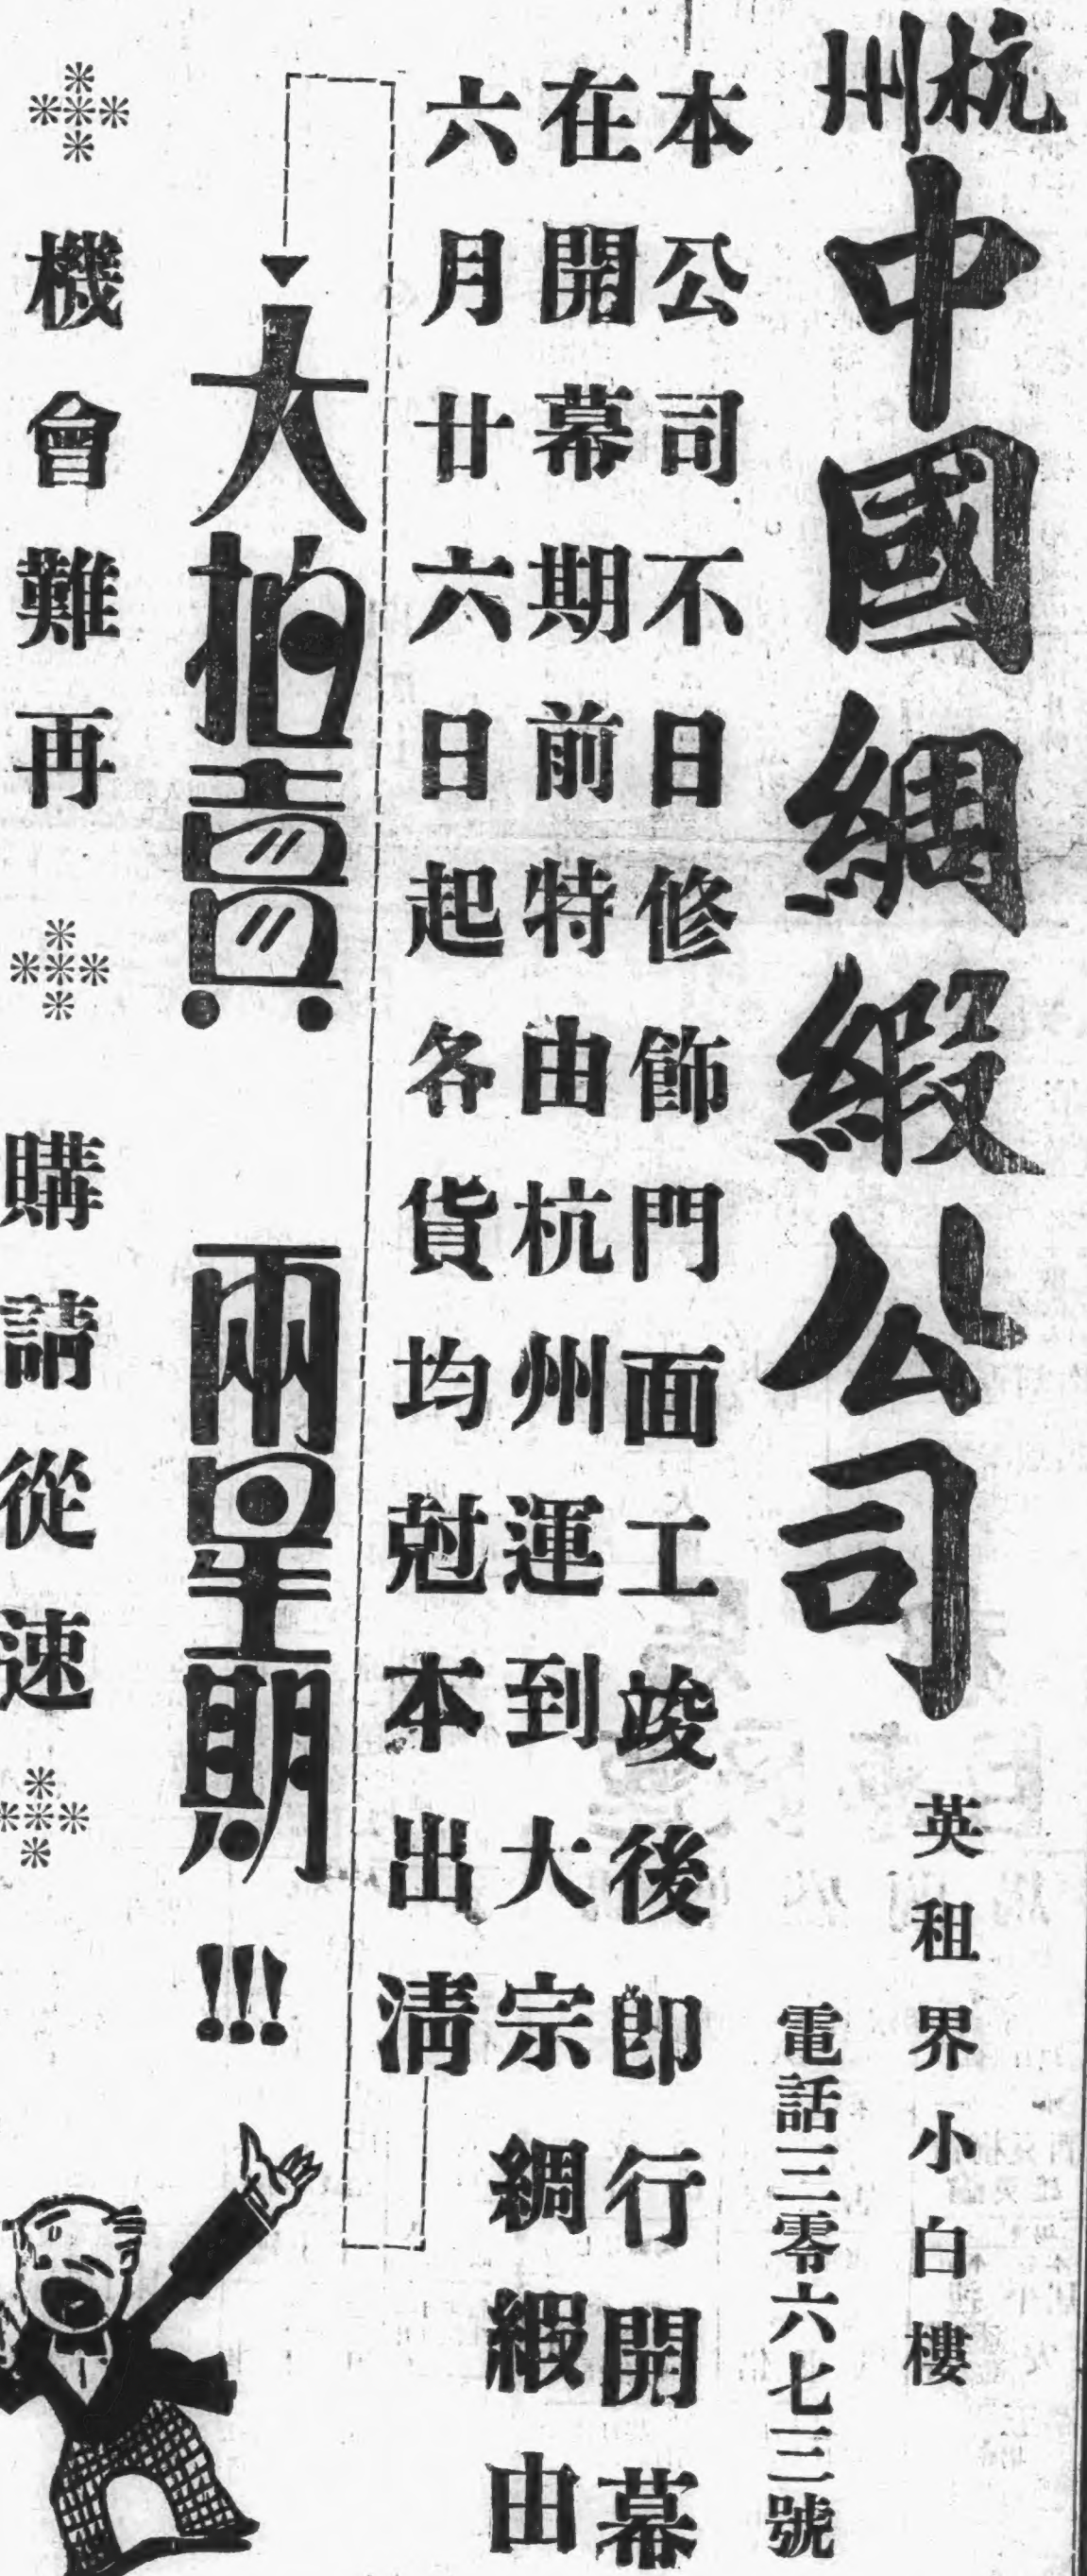 杭州
中國綢緞公司
英租界小白樓
電話三零六七三號
本公司不日修飾門面工竣後即行開幕
在開幕期前特由杭州運到大宗綢緞由
六月廿六日起各貨均尅本出清
大拍賣 兩星期!!!
機會難再 購請從速